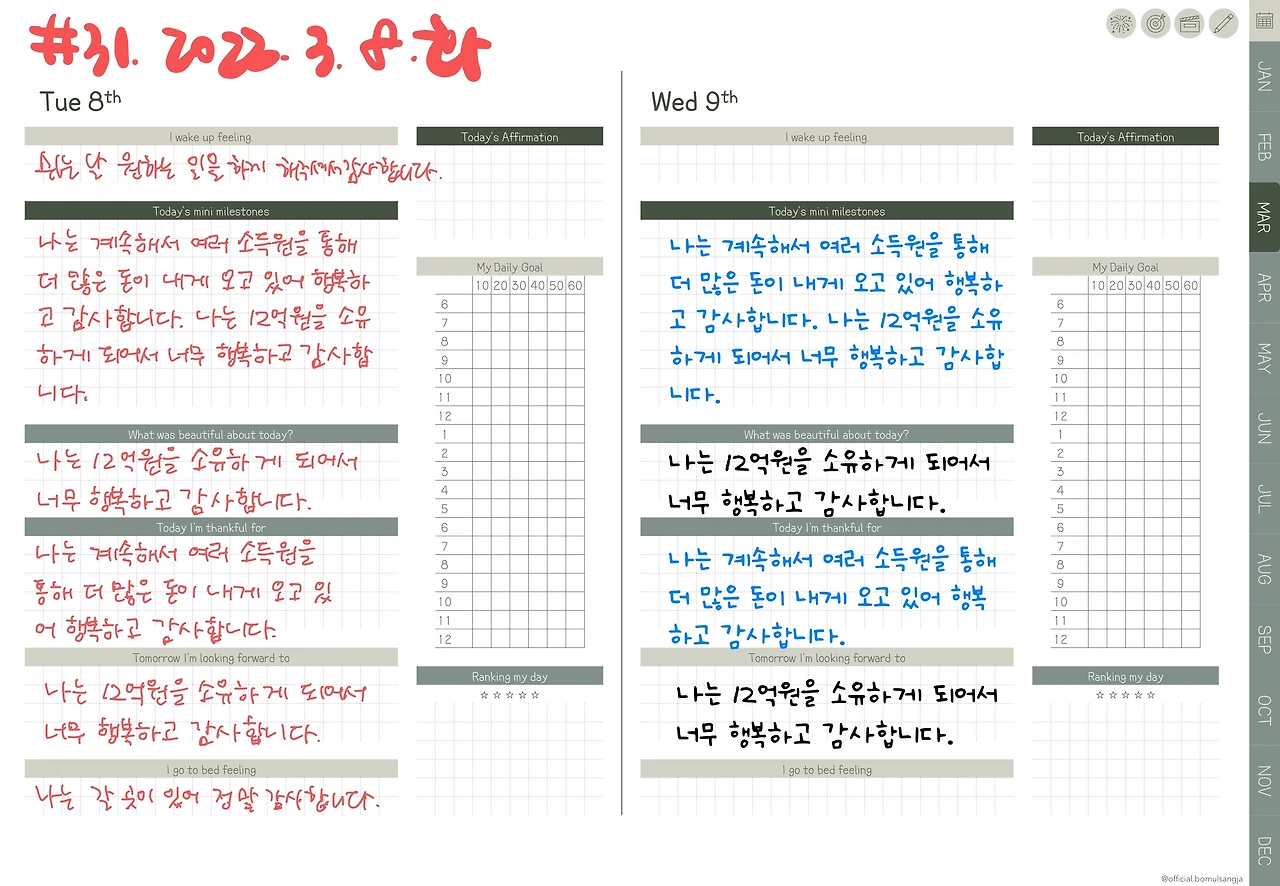 #31. 2022. 3. 8. 화
Tue 8th
I wake up feeling.
쉬는 날 원하는 일을 하게 해주셔서 감사합니다.
Today's mini milestones
나는 계속해서 여러 소득원을 통해
더 많은 돈이 내게 오고 있어 행복하
고 감사합니다. 나는 12억원을 소유
하게 되어서 너무 행복하고 감사합
니다.
What was beautiful about today?
나는 12억원을 소유하게 되어서
너무 행복하고 감사합니다.
Today I'm thankful for
나는 계속해서 여러 소득원을
통해 더 많은 돈이 내게 오고 있
어 행복하고 감사합니다.
Tomorrow I'm looking forward to
나는 12억원을 소유하게 되어서
너무 행복하고 감사합니다.
I go to bed feeling
나는 갈 곳이 있어 정말 감사합니다.
Today's Affirmation
My Daily Goal
10 20 30 40 50 60
6
7
8
9
10
11
12
1
2
3
4
5
6
7
8
9
10
11
12
Ranking my day
☆☆☆☆☆
Wed 9th
I wake up feeling.
Today's mini milestones
나는 계속해서 여러 소득원을 통해
더 많은 돈이 내게 오고 있어 행복하
고 감사합니다. 나는 12억원을 소유
하게 되어서 너무 행복하고 감사합
니다.
What was beautiful about today?
나는 12억원을 소유하게 되어서
너무 행복하고 감사합니다.
Today I'm thankful for
나는 계속해서 여러 소득원을 통해
더 많은 돈이 내게 오고 있어 행복
하고 감사합니다.
Tomorrow I'm looking forward to
나는 12억원을 소유하게 되어서
너무 행복하고 감사합니다.
I go to bed feeling
Today's Affirmation
My Daily Goal
10 20 30 40 50 60
6
7
8
9
10
11
12
1
2
3
4
5
6
7
8
9
10
11
12
Ranking my day
☆☆☆☆☆
JAN
FEB
MAR
APR
MAY
JUN
JUL
AUG
SEP
OCT
NOV
DEC
@official.bomulsangja